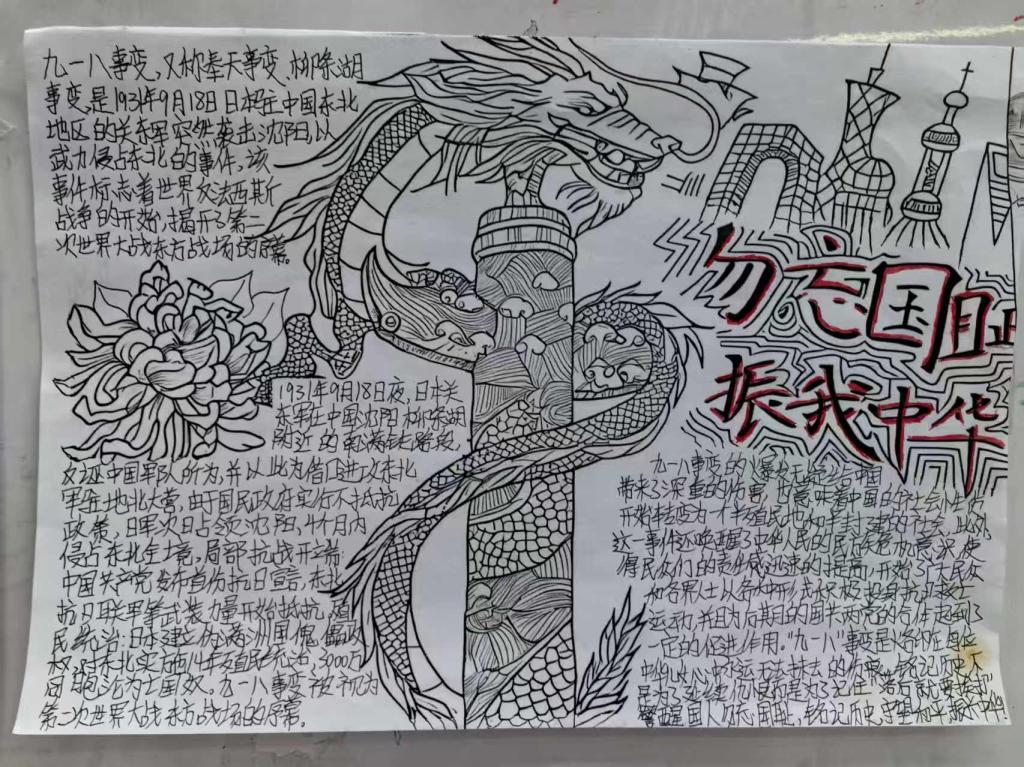 九一八事变，又称奉天事变、柳条湖
事变，是1931年9月18日日投在中国东北
地区的关东军突然袭击沈阳，以
武力侵占东北的事件，该
事件标志着世界反法西斯
战争的开始，揭开了第二
次世界大战东方战场的序幕。
勿忘国耻
振我中华
1931年9月18日夜，日本关
东军在中国沈阳柳条湖
附近的南满铁路
反诬中国军队所为，并以此为借口进攻东北
军驻地北大营，由于国民政府实行不抵抗
政策，日军次日占领沈阳，4个月内
侵占东北全境，局部抗战开始
中国共产党发布首份抗日宣言，东北
抗日联军等武装力量开始抵抗，
民统治；日本建立伪满洲国傀儡政
权，对东北实行14年殖民统治，3000万
同胞沦为亡国奴。九一八事变被视为
第二次世界大战东方战场的序幕。
九一八事变的爆发无疑给中国
带来了深重的伤害，也意味着中国的社会性质
开始转变为一个半殖民地和半封建的社会，此外
这一事件还唤醒了中华人民的民族意识，使
得民众们的责任感迅速的提高，开始了
和各界人士以各种形式积极投身抗日救亡
运动，并且为后期的国共两党的合作起到了
一定的促进作用。"九一八"事变是
中华儿女心底永远无法抹去的伤痕，铭记历史不
是为了延续仇恨而是为了记住"落后就要挨打"
警醒国人勿忘国耻，铭记历史